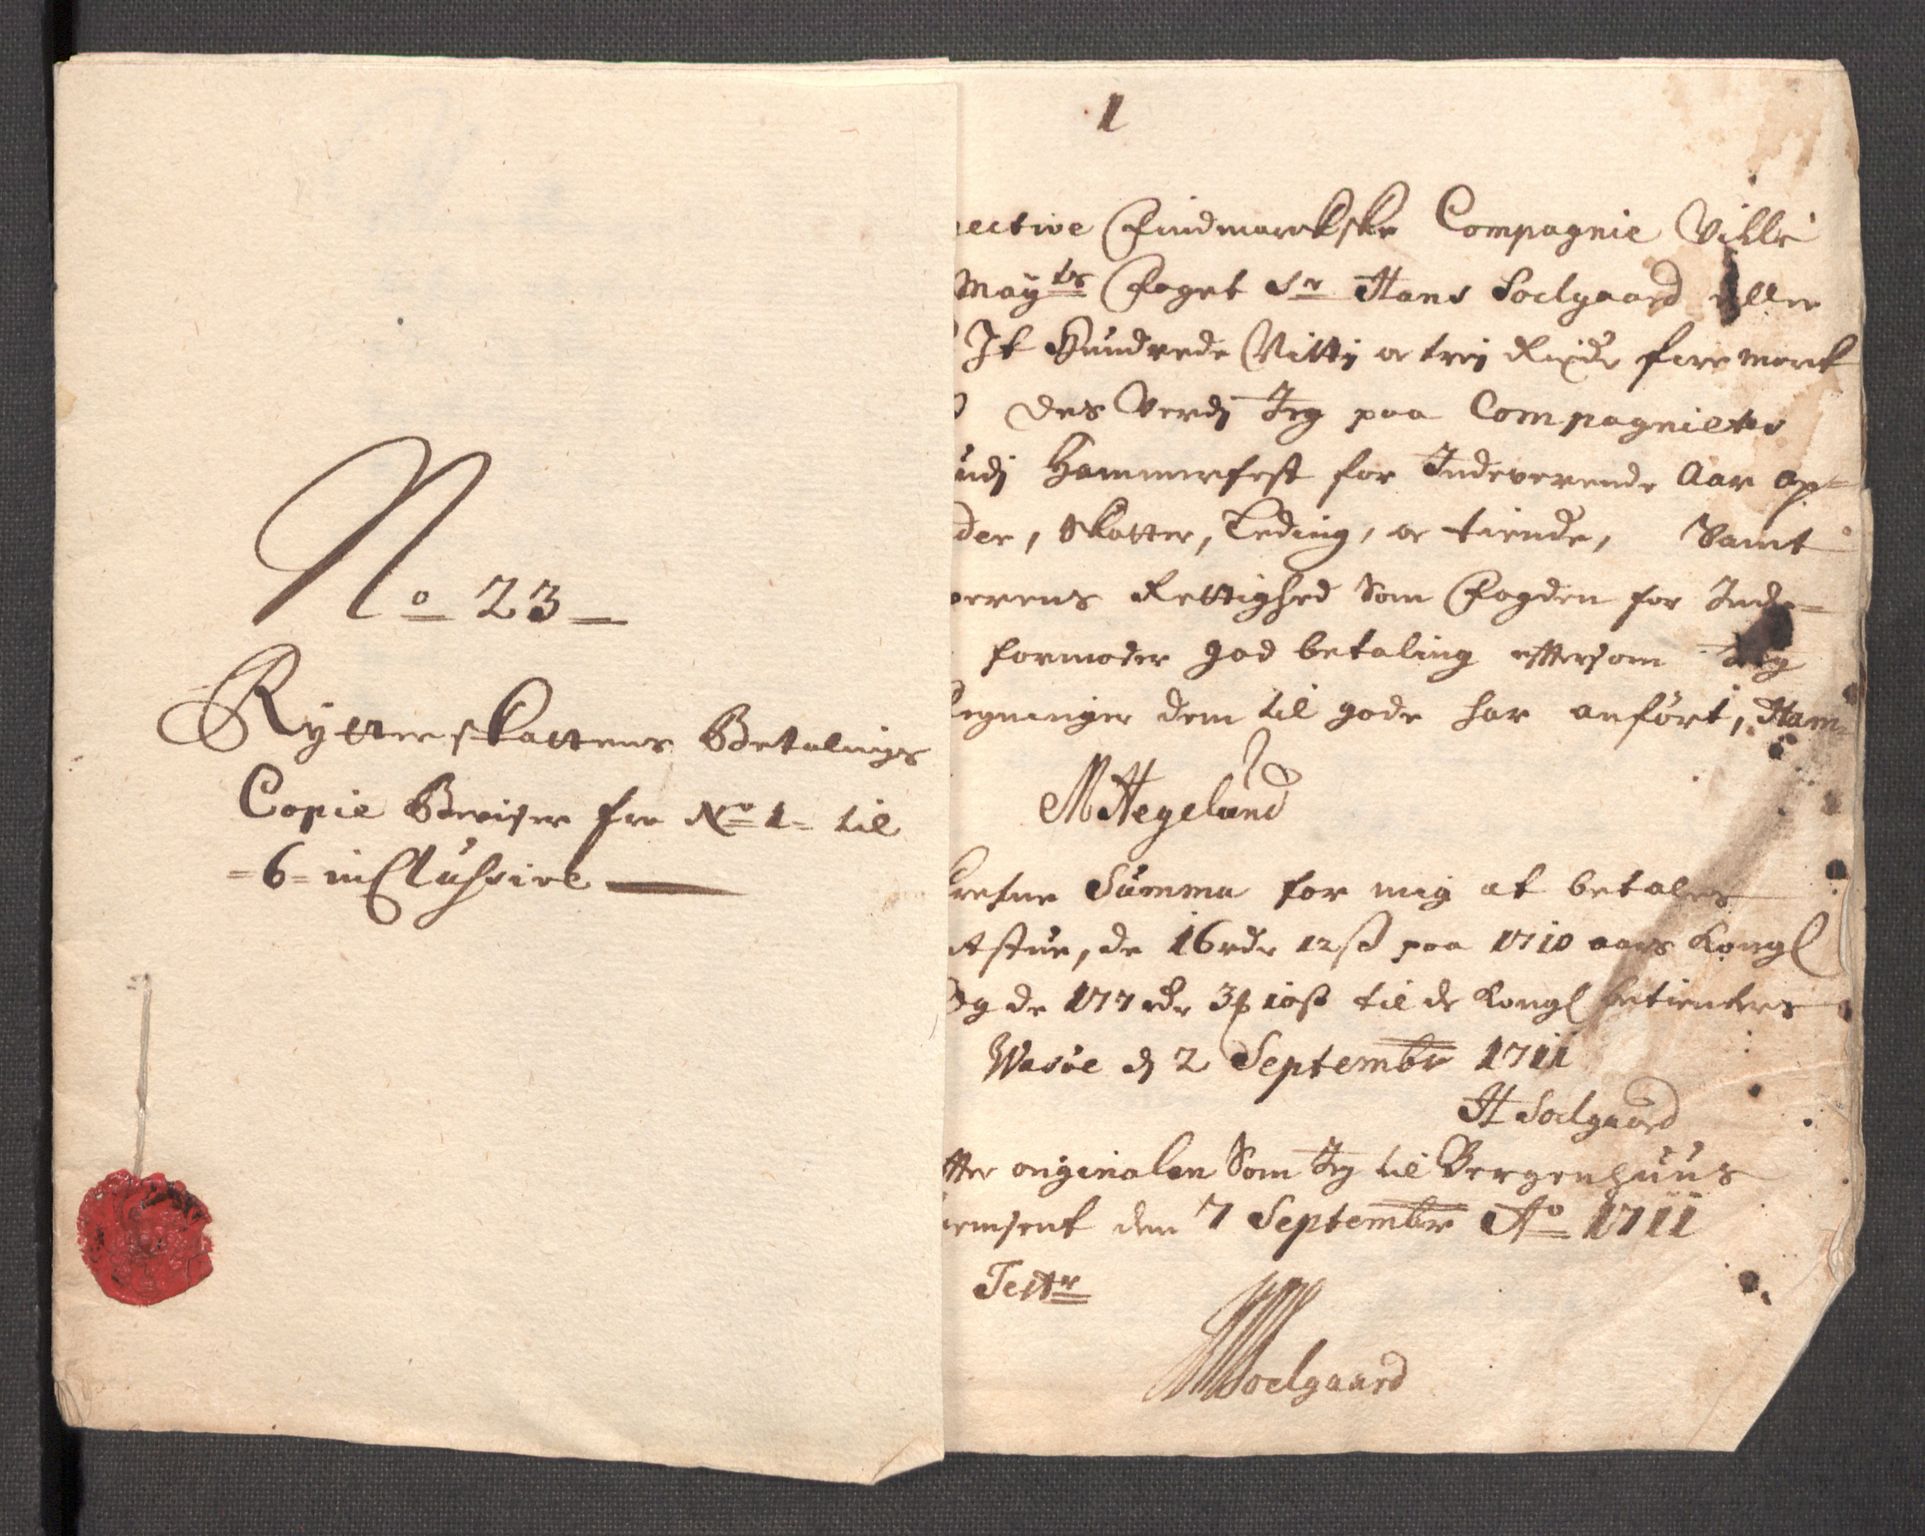 No 23
Rytterskattens Betalnings
Copie Beviser fra No 1 til
6 inclusive
1
ective Findmarckske Compagnie Ville
Mayts Foget Sr Hans Soelgaard eller
It Hundrede Nitti oc trej Rixdr fire marck
des Verdj Jeg paa Compagniets
udj Hammerfest for Indeverende Aar op=
der, Skatter, Leding, oc tiende, Samt
erens Rettighed Som Fogden for Inde=
formoder god betaling eftersom Jeg
egninger dem til gode har anført, Ham=
M Hegelund
refne Summa for mig at betales
stue, de 16 rdr 12 ß paa 1710 aars Kongl
Og de 177 rdr 3 10 ß til de Kongl betienters
Wasøe d 2 Septembr 1711
H Soelgaard
fter originalen Som Jeg til Bergenhuus
iemsent den 7 Septembr Ao 1711
Test
Soelgaard